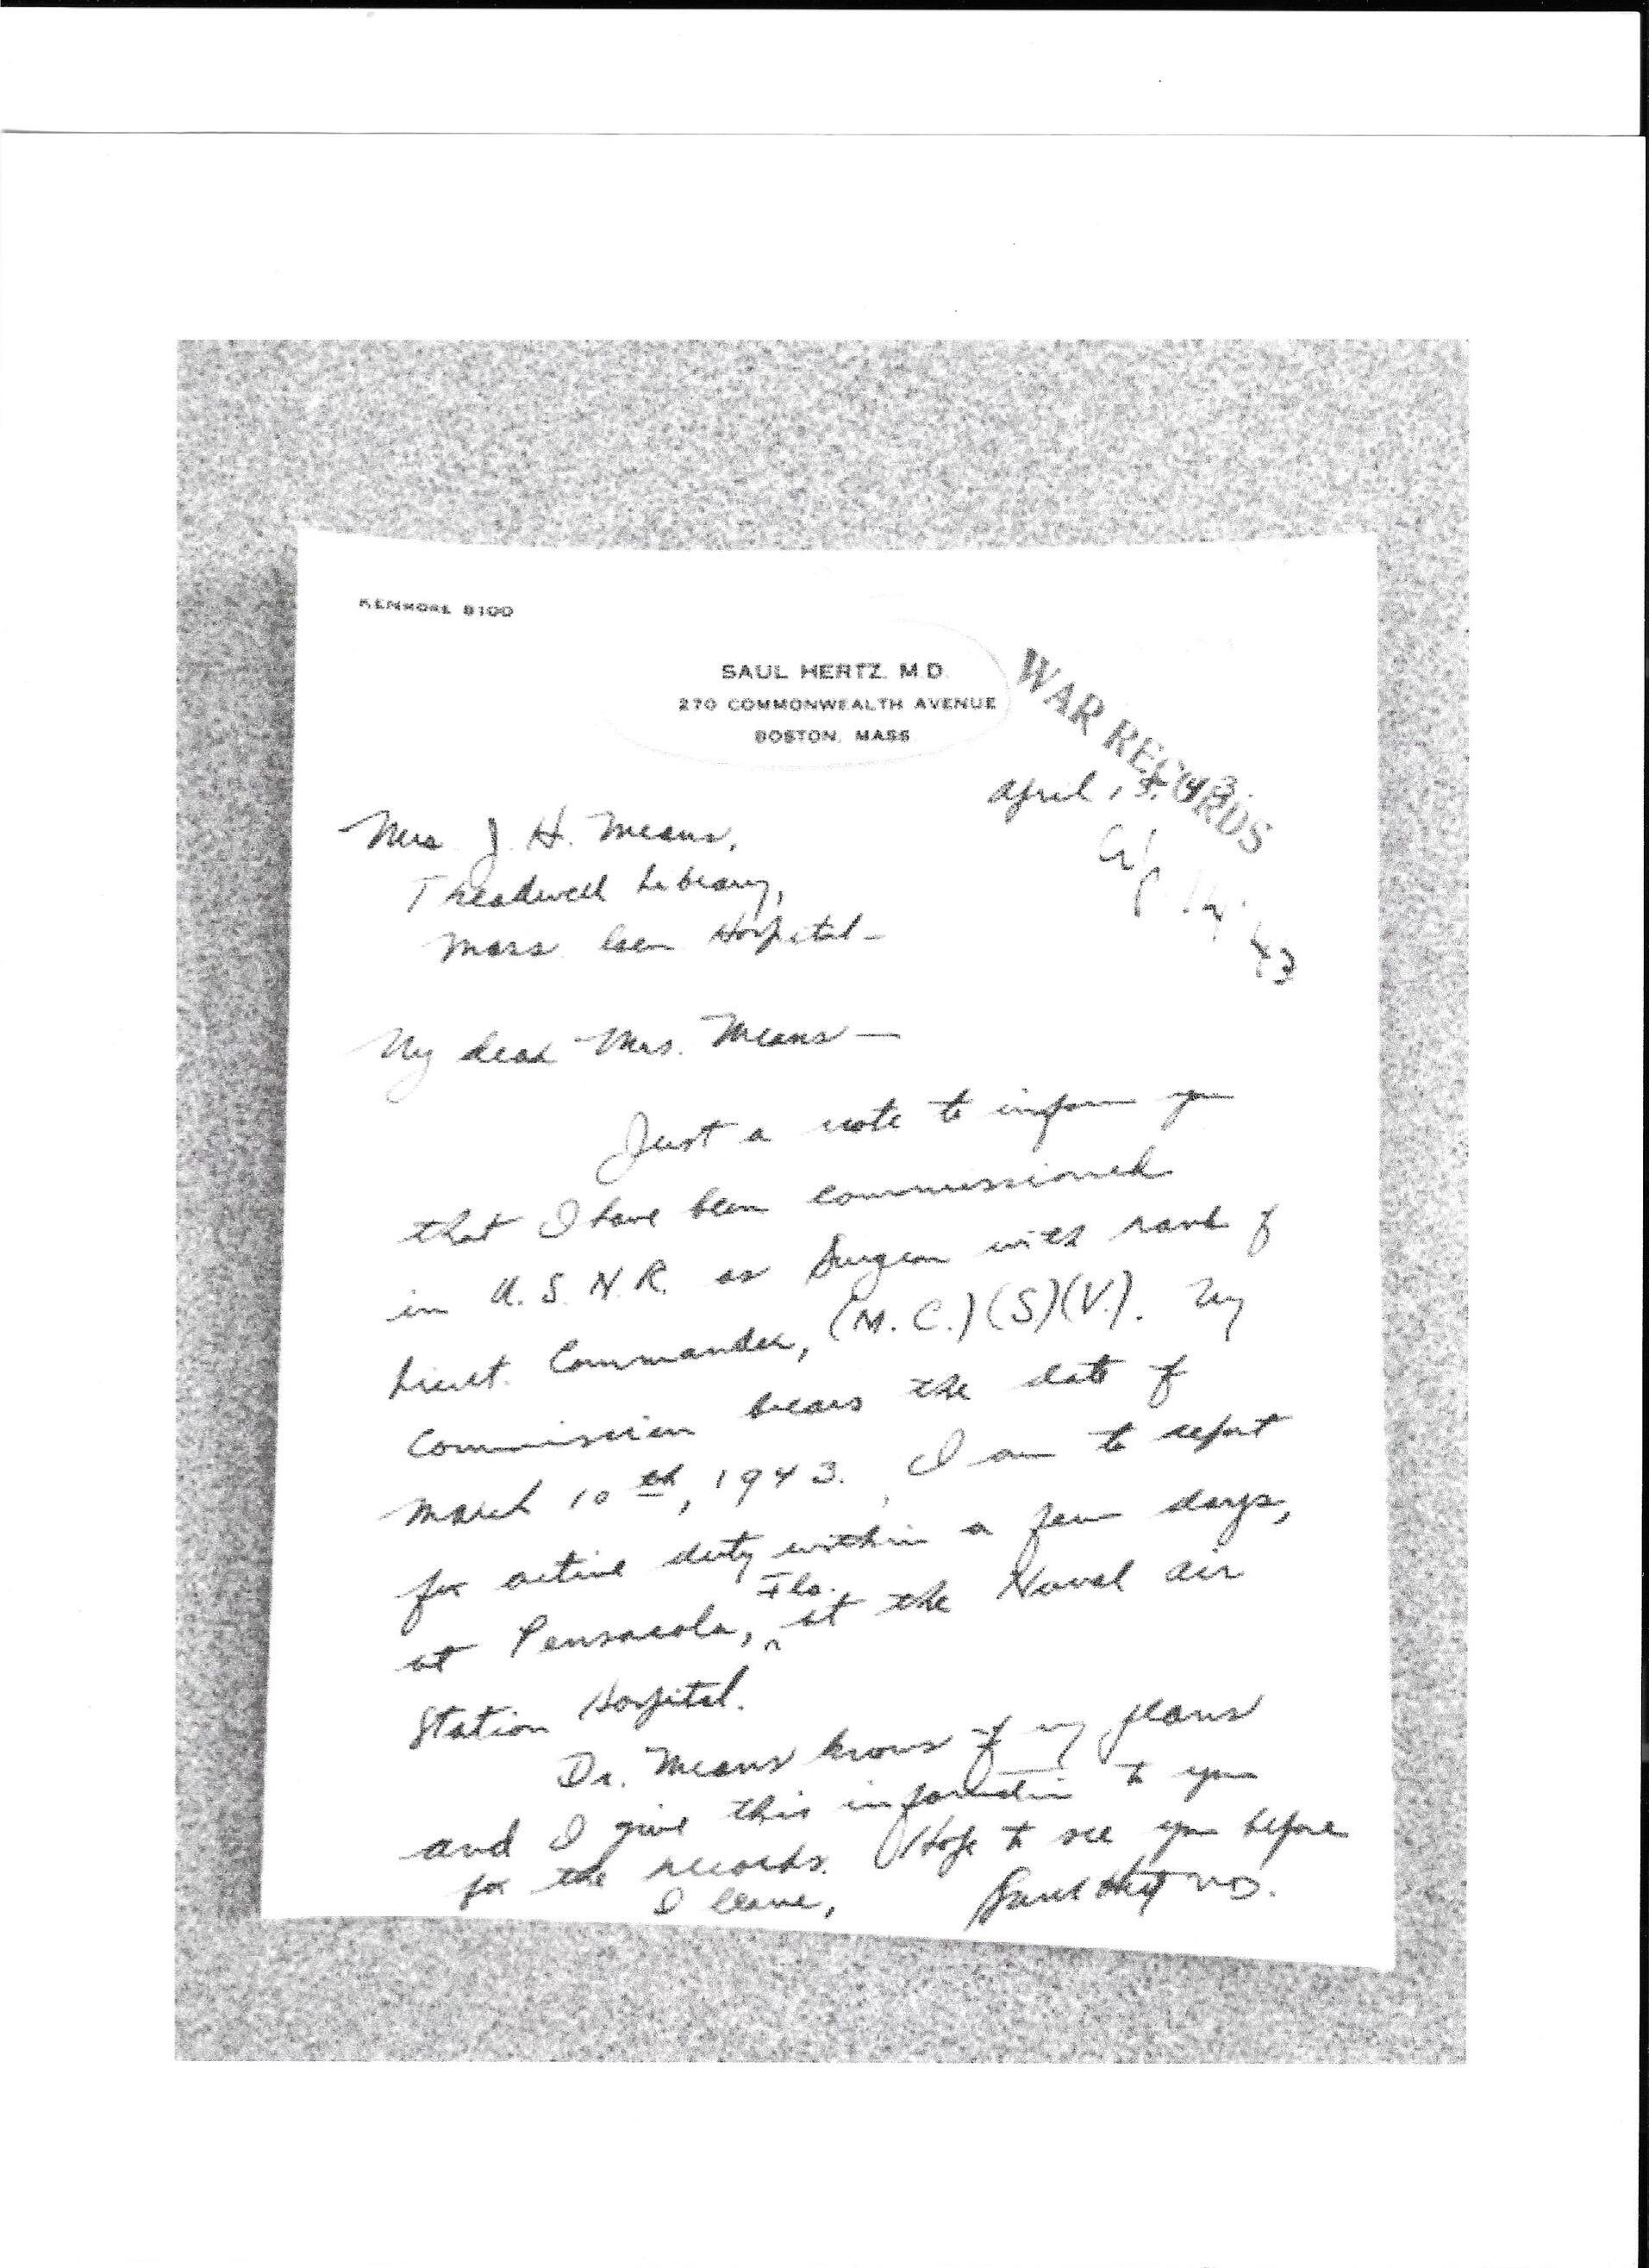 KENMORE 8100
SAUL HERTZ. M.D.
270 COMMONWEALTH AVENUE
BOSTON, MASS.
WAR RECORDS
April
43
Mrs J. H. Means,
Treadwell Library,
Mass. Gen Hospital-
My dear Mrs. Means —
Just a note to inform you
that I have been commissioned
in U.S.N.R. as Surgeon with rank of
Lieut. Commander, (M.C.)(S)(V.). My
Commission bears the date of
March 10th, 1943. I am to report
for active duty within a few days,
at Pensacola, Fla. at the Naval Air
Station Hospital.
Dr. Means knows of my plans
and I give this information to you
for the records. Hope to see you before
I leave,
Saul Hertz M.D.